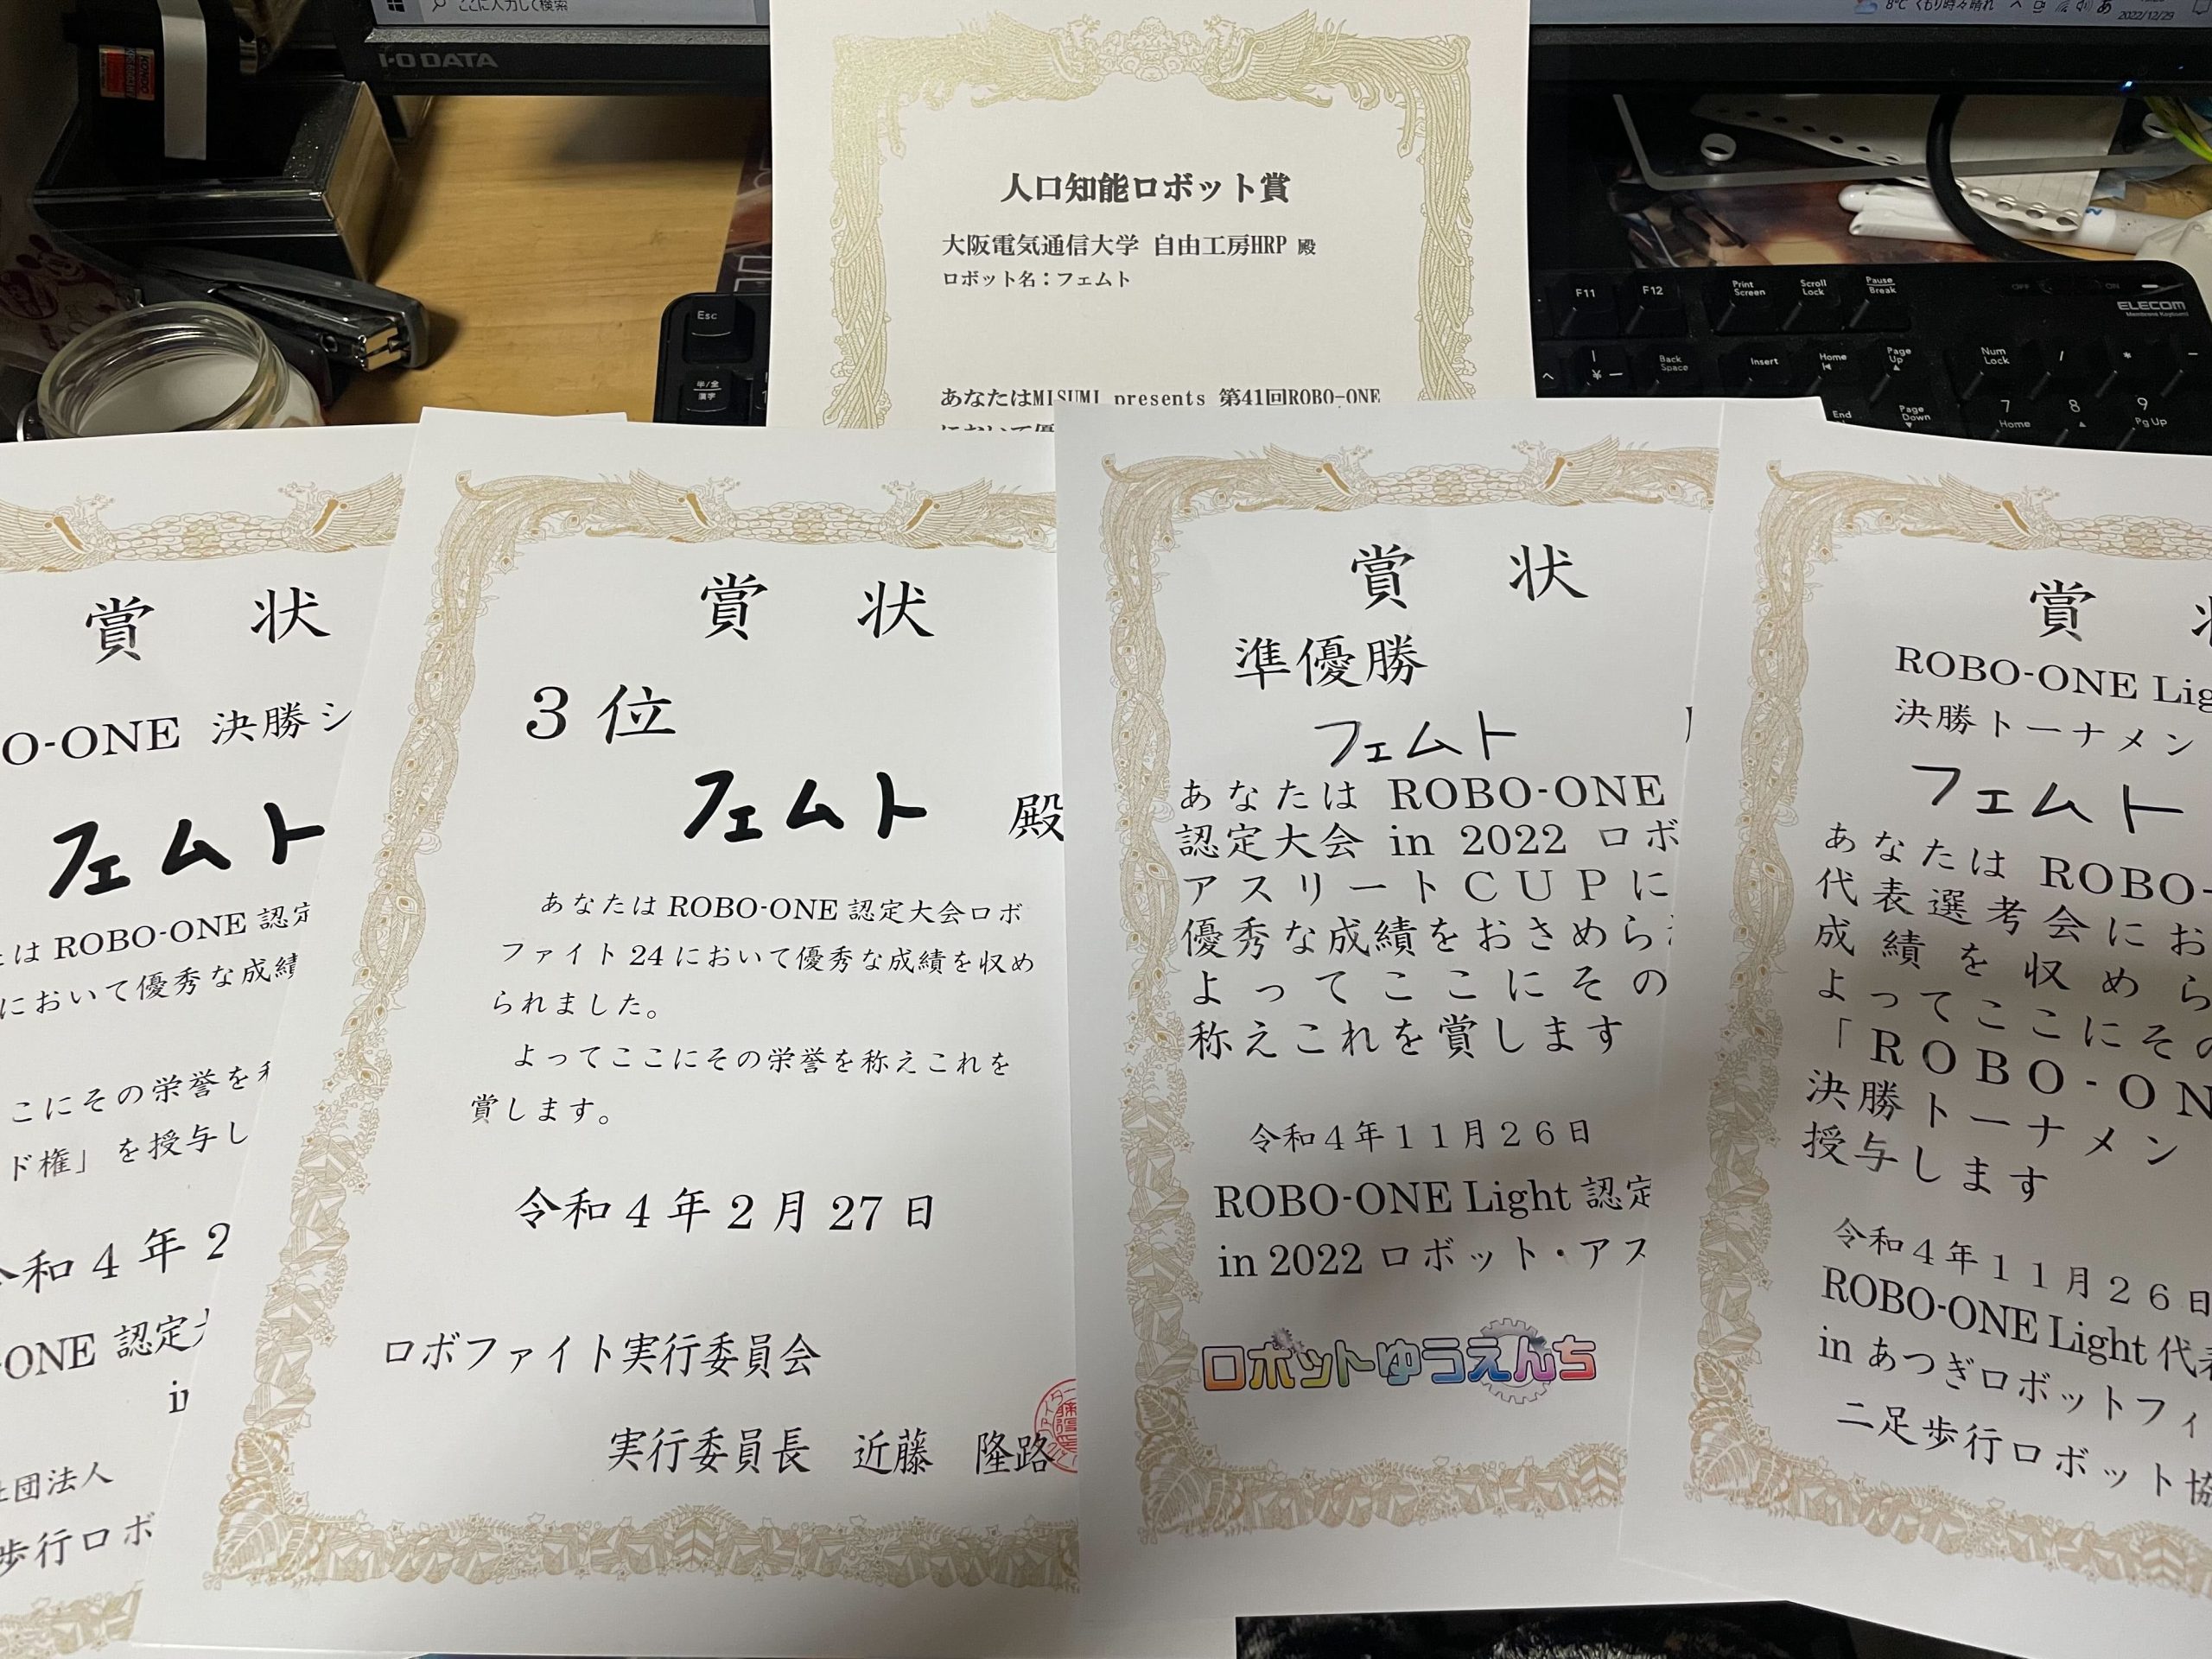 ここに入力して検索
8°C くもり時々晴れ
あ
2022/12/29
I-O DATA
KONDO
人口知能ロボット賞
大阪電気通信大学 自由工房HRP 殿
ロボット名：フェムト
あなたはMISUMI presents 第41回ROBO-ONE
において優
Esc
半/全
漢字
F11
F12
Print
Screen
Scroll
Lock
Pause
Break
OFF
ON
ELECOM
Membrane Keyboard
Back
Space
Insert
Home
Page
Up
Num
Lock
/
*
-
End
Page
Down
7
Home
8
9
Pg Up
賞 状
O-ONE 決勝シ
フェムト
は ROBO-ONE 認定
において優秀な成績
こにその栄誉を
ド権」を授与し
令和 4 年 2
-ONE 認定
in
社団法人
歩行ロボ
賞 状
3 位
フェムト 殿
あなたは ROBO-ONE 認定大会ロボ
ファイト 24 において優秀な成績を収め
られました。
よってここにその栄誉を称えこれを
賞します。
令和 4 年 2 月 27 日
ロボファイト実行委員会
実行委員長 近藤 隆路
賞 状
準優勝
フェムト
あなたは ROBO-ONE
認定大会 in 2022 ロボ
アスリートＣＵＰに
優秀な成績をおさめら
よってここにその
称えこれを賞します
令和４年１１月２６日
ROBO-ONE Light 認定
in 2022 ロボット・アス
ロボットゆうえんち
賞
ROBO-ONE Lig
決勝トーナメン
フェムト
あなたは ROBO-
代表選考会にお
成績を収めら
よってここにその
「ＲＯＢＯ-ＯＮ
決勝トーナメン
授与します
令和４年１１月２６日
ROBO-ONE Light 代表
in あつぎロボットフィ
二足歩行ロボット協